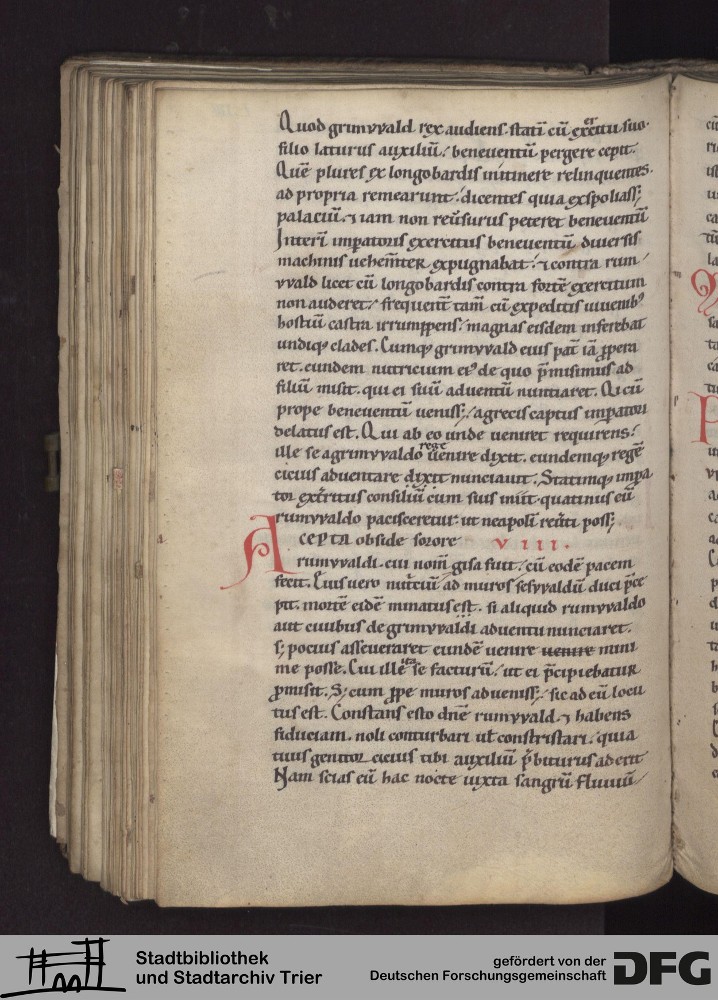 Quod grimvvald rex audiens. statī cū excitu suo.
er
filio laturus auxiliū. beneventū pergere cepit.
Quē plures ex longobardis initinere relinquentes.
ad propria remearunt. dicentes quia exspoliass;
palaciū. ⁊ iam non reūsurus peteret beneventū
Interī imꝑatoris exercitus beneventū diversis
machinis uehemter expugnabat. ⁊ contra rum
vvald licet cū longobardis contra fortē exercitum
non auderet. frequent tam̄ cū expeditis iuuenibꝰ
hostiū castra irrumpens. magnas eisdem inferebat
undiqꝫ clades. Cumqꝫ grimvvald eius pat̄ iā ꝓpera
ret. eundem nutricium eiꝰ de quo p̄misimus ad
filiū misit. qui ei suū adventū nunciaret. Qi cū
prope beneventū veniss; agrecis captus imꝑatori
delatus est. Qui ab eo unde veniret requirens.
rege
ille se agrimvvaldo uenire dixit. eundemqꝫ regē
cicius adventare dixit nunciavit. Statimqꝫ imꝑa
tor exteritus consiliū cum suis iniit. quatinus cū
rumvvaldo pacisceretur. ut neapolī reūti poss;
Accepta obside sorore VIII.
rumvvaldi. cui nom̄ gisa fuit. cū eodē pacem
fecit. Eius uero nutciū ad muros sesvvaldū duci p̄ce
pit. mortē eidē minatus est. si aliquid rumvvaldo
aut civibus de grimvvaldi adventu nunciaret.
s; pocius asseveraret eundē venire uenire mini
me posse. Cui ille ita se facturū. ut ei p̄cipiebatur
ꝓmisit. S; cum ꝓpe muros adveniss; sic ad eū locu
tus est. Constans esto dn̄e rumvvald. ⁊ habens
fiduciam. noli conturbari ut̄ constristari. quia
tuus genitor cicius tibi auxiliū p̄biturus aderit
Nam scias eū hac nocte iuxta sangrū fluviū
Stadtbibliothek
und Stadtarchiv Trier
gefördert von der
Deutschen Forschungsgemeinschaft
DFG